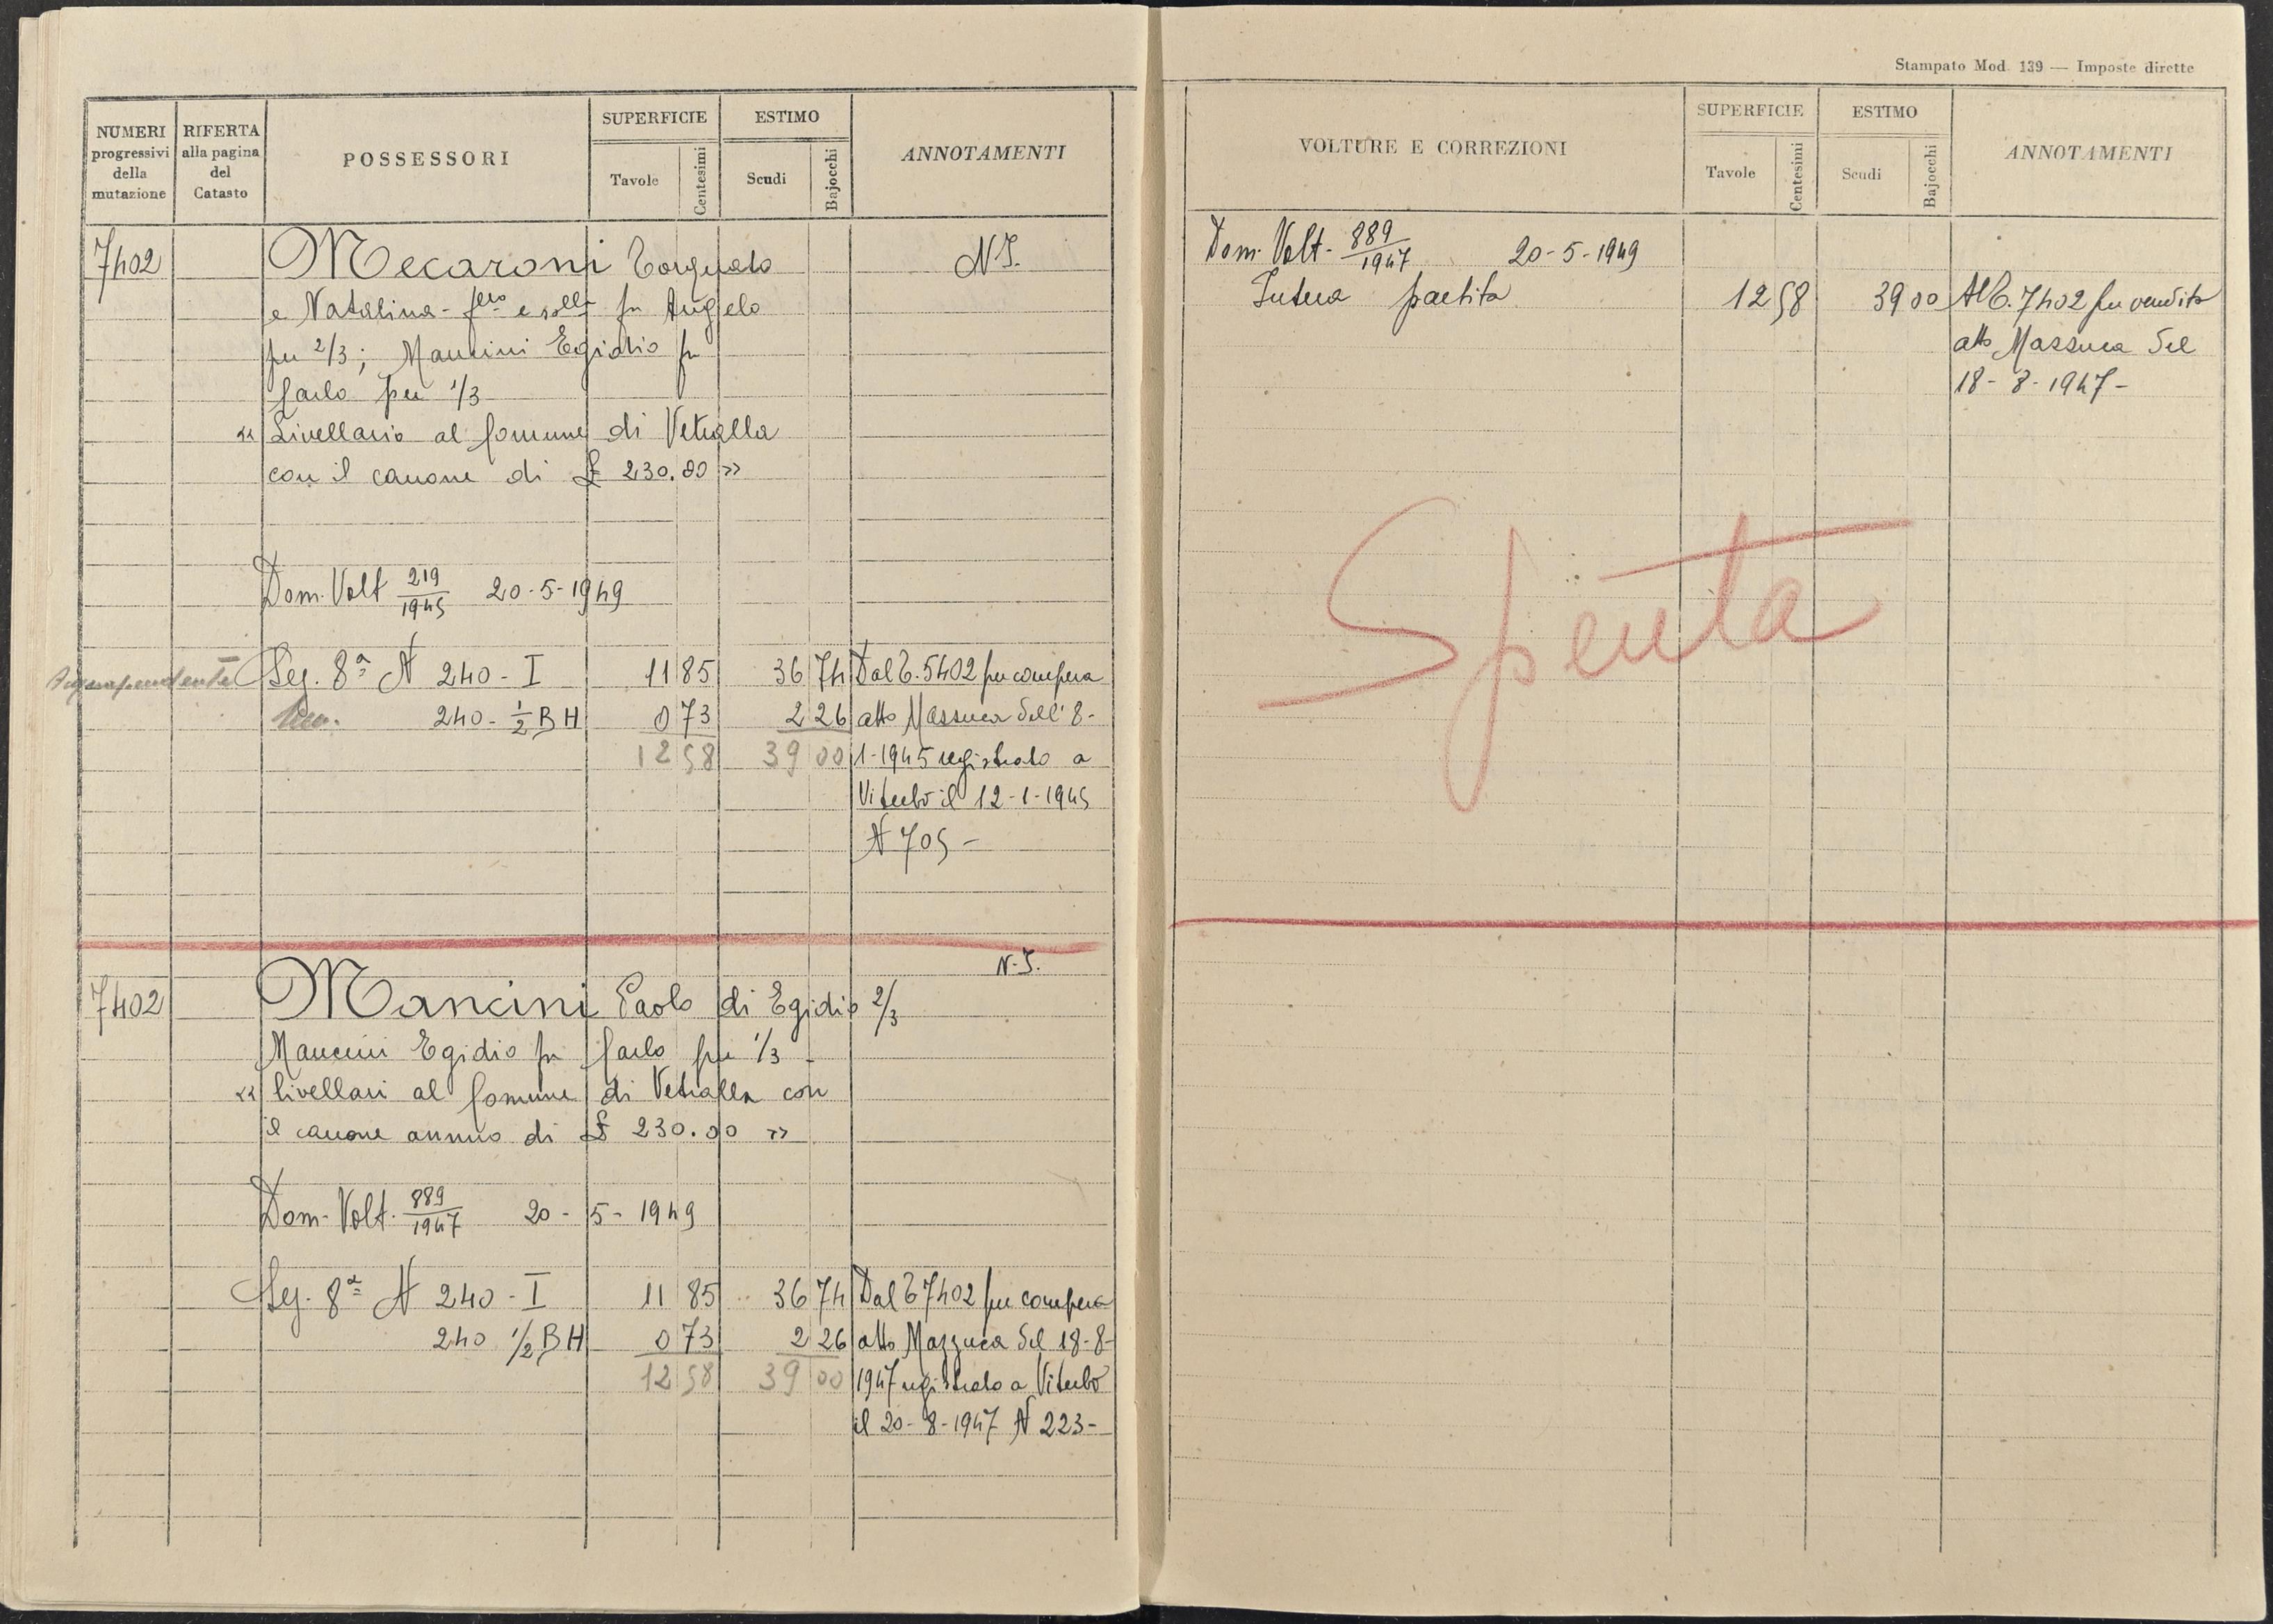 NUMERI progressivi della mutazione
RIFERTA alla pagina del Catasto
POSSESSORI
SUPERFICIE
Tavole
Centesimi
ESTIMO
Scudi
Bajocchi
ANNOTAMENTI
7402 Mecaroni Torquato N.I.
e Natalina - flli e solle fu Angelo
per 2/3; Mancini Egidio fu
Carlo per 1/3
"Livellario al Comune di Vetralla
con il canone di £ 230.00"
Dom. Volt 219/1945 20-5-1949
Sez. 8ª N 240 - I 11 85 36 74 Dal C. 5402 per compera
240 - 1/2 BH 0 73 2 26 atto Massuca dell' 8-
12 58 39 00 1-1945 registrato a
Viterbo il 12-1-1945
N 705 -
N.I.
7402 Mancini Paolo di Egidio 2/3
Mancini Egidio fu Carlo per 1/3 -
"livellari al Comune di Vetralla con
il canone annuo di £ 230.00"
Dom. Volt. 889/1947 20-5-1949
Sez. 8ª N 240 - I 11 85 36 74 Dal C 7402 per compera
240 1/2 BH 0 73 2 26 atto Mazzuca del 18-8-
12 58 39 00 1947 registrato a Viterbo
il 20-8-1947 N 223-
Stampato Mod. 139 — Imposte dirette
VOLTURE E CORREZIONI
SUPERFICIE
Tavole
Centesimi
ESTIMO
Scudi
Bajocchi
ANNOTAMENTI
Dom. Volt. 889/1947 20-5-1949
Intera partita 12 58 39 00 Al C. 7402 per vendita
atto Massuca del
18-8-1947-
Spenta